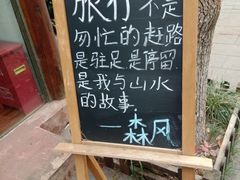 旅行不是
匆忙的赶路
是驻足是停留
是我与山水
的故事.
一森风